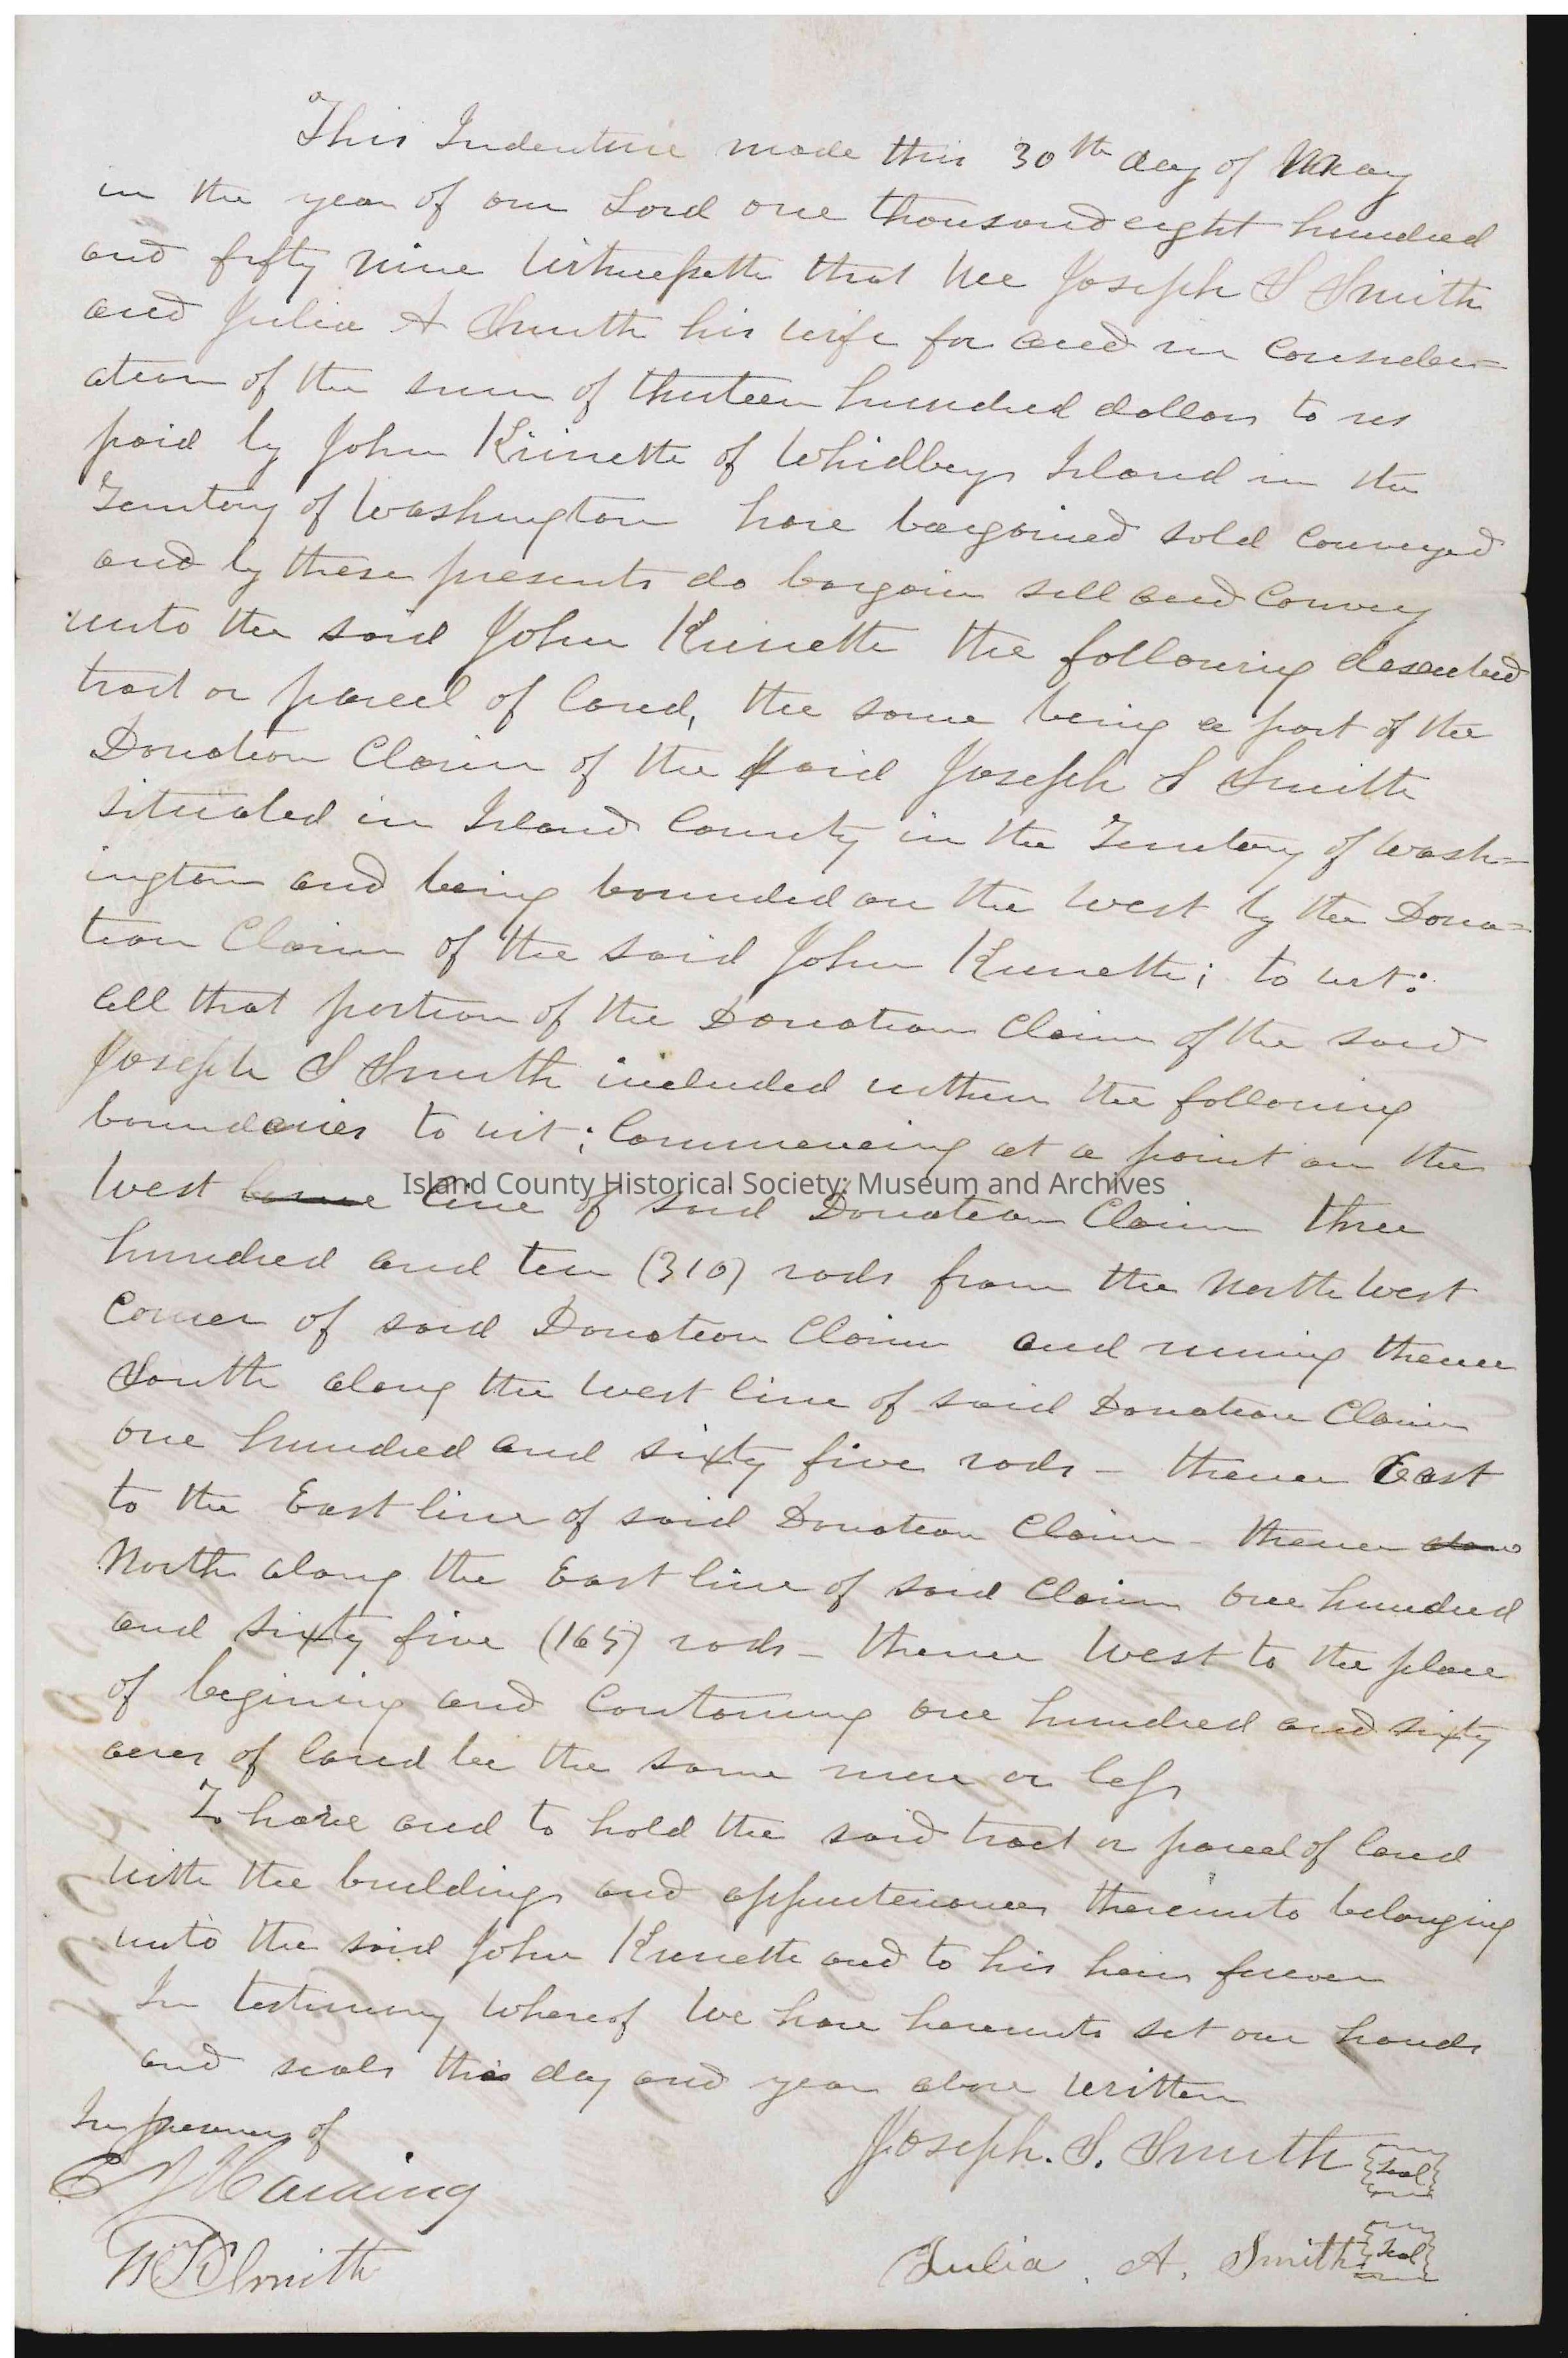 This Indenture made this 30th day of May
in the year of our Lord one thousand eight hundred
and fifty nine Witnesseth that We Joseph S Smith
and Julia A Smith his wife for and in Consider=
ation of the sum of thirteen hundred dollars to us
paid by John Kinneth of Whidbeys Island in the
Territory of Washington have bargained sold Conveyed
and by these presents do bargain sell and Convey
unto the said John Kinneth the following described
tract or parcel of land, the same being a part of the
Donation Claim of the said Joseph S Smith
situated in Island County in the Territory of Wash=
ington and being bounded on the West by the Dona=
tion Claim of the said John Kinneth; to wit:
all that portion of the Donation Claim of the said
Joseph S Smith included within the following
boundaries to wit; Commencing at a point on the
West line of said Donation Claim three
Island County Historical Society: Museum and Archives
hundred and ten (310) rods from the North West
Corner of said Donation Claim and runing thence
South along the West line of said Donation Claim
one hundred and sixty five rods - thence East
to the East line of said Donation Claim - thence
North along the East line of said Claim one hundred
and sixty five (165) rods - thence West to the place
of begining and Containing one hundred and sixty
acres of land be the same more or less
To have and to hold the said tract or parcel of land
with the buildings and appurtenances thereunto belonging
unto the said John Kinneth and to his heirs forever
In testimony Whereof We have hereunto set our hands
and seals this day and year above Written
In presence of
Joseph. S. Smith Seal
Julia. A. Smith Seal
Smith